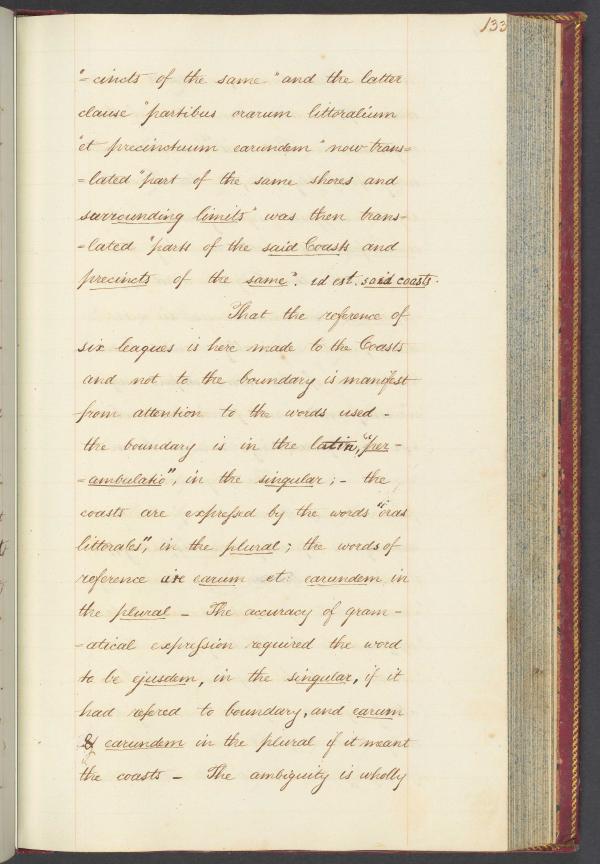 133
"=cincts of the same" and the latter
clause "partibus orarum littoralium
"et precinctuum earundem" now trans=
=lated "part of the same shores and
surrounding limits" was then trans-
=lated "parts of the said Coasts and
precincts of the same". id est. said coasts.
That the reference of
six leagues is here made to the Coasts
and not to the boundary is manifest
from attention to the words used -
the boundary is in the latin, "per-
=ambulatio", in the singular; - the
coasts are expressed by the words "oras
littorales", in the plural; the words of
reference are earum et earundem in
the plural - The accuracy of gram-
-atical expression required the word
to be ejusdem, in the singular, if it
had refered to boundary, and earum
& earundem in the plural if it meant
the coasts - The ambiguity is wholly